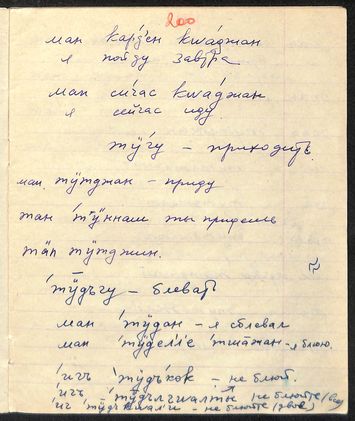 200
ман карʒ́ен кwа́джан
я пойду завтра
ман си́час кwа́джан
я сейчас иду.
тӱ́гу – приходить.
ман тӱтджан – приду
тан 'тӱ́ннаш ты придешь
тӓп тӱтджин.
'тӱдъгу – блевать
ман 'тӱдан – я сблевал
ман 'тӱдел'ле – я блюю.
'игъ 'тӱдъкок – не блюй.
'игъ не блюйте
'иг не блюйте (двое)